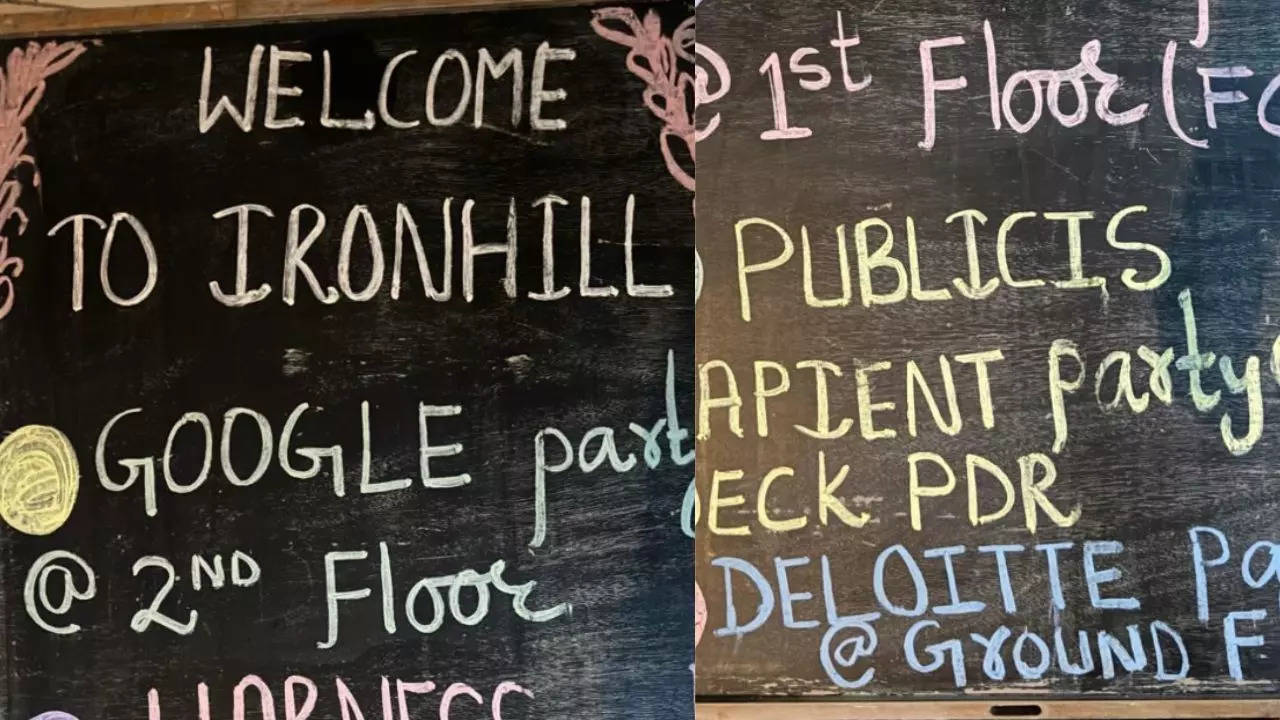 WELCOME
TO IRONHILL
GOOGLE part
@ 2ND Floor
HARNESS
@ 1st Floor (F
PUBLICIS
APIENT party
ECK PDR
DELOITTE Pa
@ GROUND F